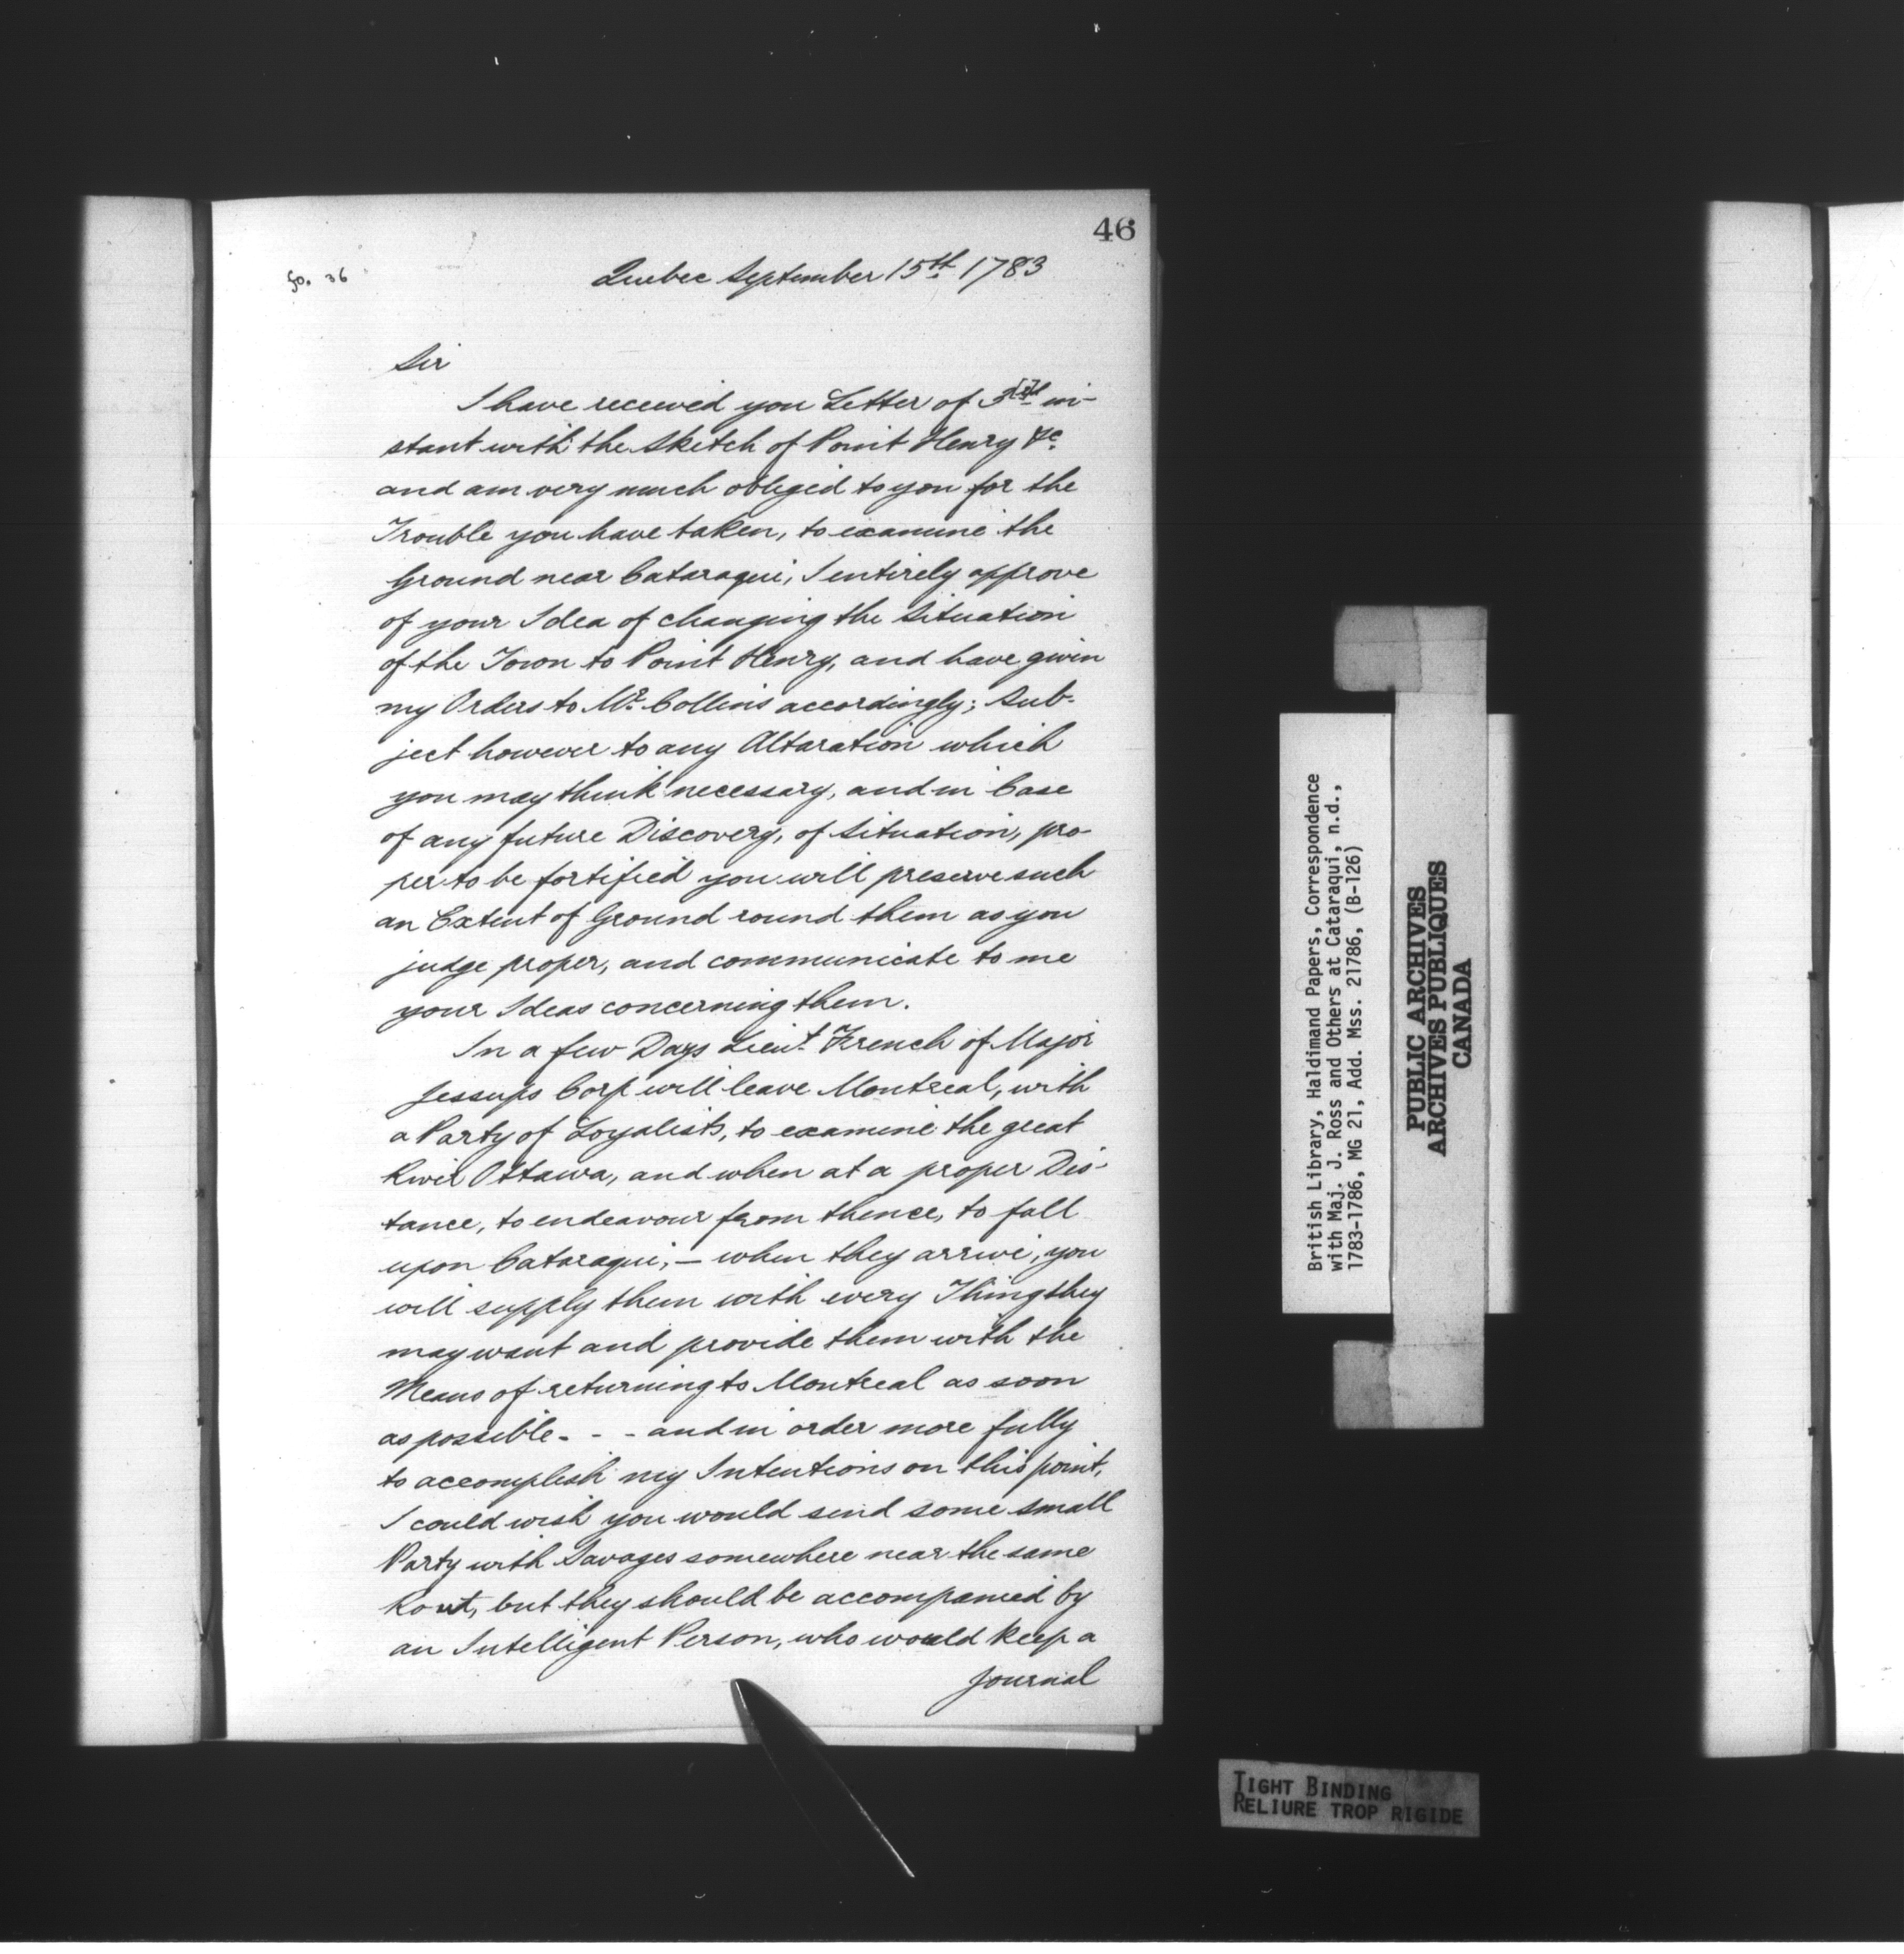 46
fo. 36
Quebec September 15th 1783
Sir
I have received you Letter of 3[rd] in-
stant with the Sketch of Point Henry &c.
and am very much obliged to you for the
Trouble you have taken, to examine the
Ground near Cataraqui, I entirely approve
of your Idea of changing the Situation
of the Town to Point Henry, and have given
my Orders to Mr. Collins accordingly; Sub-
ject however to any Altaration which
you may think necessary, and in Case
of any future Discovery, of Situation, pro-
per to be fortified you will preserve such
an Extent of Ground round them as you
judge proper, and communicate to me
your Ideas concerning them.
In a few Days Lieut. French of Major
Jessups Corp will leave Montreal, with
a Party of Loyalists, to examine the great
River Ottawa, and when at a proper Dis-
tance, to endeavour from thence, to fall
upon Cataraqui, — when they arrive, you
will supply them with every Thing they
may want and provide them with the
Means of returning to Montreal as soon
as possible - - - and in order more fully
to accomplish my Intentions on this point,
I could wish you would send some small
Party with Savages somewhere near the same
Rout, but they should be accompanied by
an Intelligent Person, who would keep a
Journal
British Library, Haldimand Papers, Correspondence
with Maj. J. Ross and Others at Cataraqui, n.d.,
1783-1786, MG 21, Add. Mss. 21786, (B-126)
PUBLIC ARCHIVES
ARCHIVES PUBLIQUES
CANADA
TIGHT BINDING
RELIURE TROP RIGIDE